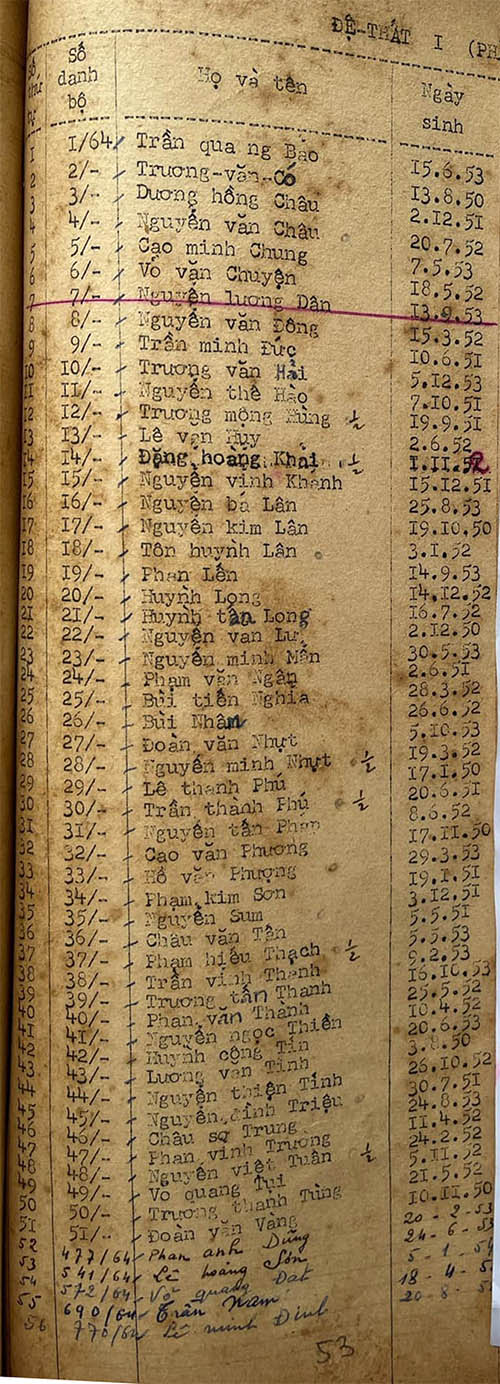 ĐỆ-THẤT I (PH
Số thứ tự Số danh bộ Họ và tên Ngày sinh
1 1/64 Trần qua ng Bảo 15.6.53
2 2/- Trương-văn-Có 13.8.50
3 3/- Dương hồng Châu 2.12.51
4 4/- Nguyễn văn Châu 20.7.52
5 5/- Cao minh Chung 7.5.53
6 6/- Võ văn Chuyện 18.5.52
7 7/- Nguyễn lương Dân 13.9.53
8 8/- Nguyễn văn Đông 15.3.52
9 9/- Trần minh Đức 10.6.51
10 10/- Trương văn Hải 5.12.53
11 11/- Nguyễn thế Hào 7.10.51
12 12/- Trương mộng Hùng ½ 19.9.51
13 13/- Lê văn Huy 2.6.52
14 14/- Đặng hoàng Khải ½ 1.11.52
15 15/- Nguyễn vinh Khánh 15.12.51
16 16/- Nguyễn bá Lân 25.8.53
17 17/- Nguyễn kim Lân 19.10.50
18 18/- Tôn huỳnh Lân 3.1.52
19 19/- Phan Lến 14.9.53
20 20/- Huỳnh Long 14.12.52
21 21/- Huỳnh tấn Long 16.7.52
22 22/- Nguyễn văn Lư 2.12.50
23 23/- Nguyễn minh Mẫn 30.5.53
24 24/- Phạm văn Ngân 2.6.51
25 25/- Bùi tiến Nghĩa 28.3.52
26 26/- Bùi Nhân 26.6.52
27 27/- Đoàn văn Nhựt 5.10.53
28 28/- Nguyễn minh Nhựt ½ 19.3.52
29 29/- Lê thanh Phú 17.1.50
30 30/- Trần thành Phú ½ 20.6.51
31 31/- Nguyễn tấn Pháp 8.6.52
32 32/- Cao văn Phương 17.11.50
33 33/- Hồ văn Phượng 29.3.53
34 34/- Phạm kim Sơn 19.1.51
35 35/- Nguyễn Sum 3.12.51
36 36/- Châu văn Tân 5.5.51
37 37/- Phạm hiếu Thạch ½ 5.5.53
38 38/- Trần vinh Thanh 9.2.53
39 39/- Trương tấn Thanh 16.10.53
40 40/- Phan văn Thành 25.5.52
41 41/- Nguyễn ngọc Thiền 10.4.52
42 42/- Huỳnh công Tín 20.6.53
43 43/- Lương văn Tính 3.8.50
44 44/- Nguyễn thiện Tính 26.10.52
45 45/- Nguyễn đình Triệu 30.7.51
46 46/- Châu sơ Trung 24.8.53
47 47/- Phan vinh Trương 11.4.52
48 48/- Nguyễn viết Tuấn ½ 24.2.52
49 49/- Vo quang Tụi 5.11.52
50 50/- Trương thanh Tùng 21.5.52
51 51/- Đoàn văn Vàng 10.11.50
52 477/64 Phan anh Dũng 20-2-53
53 541/64 Lê hoàng Sơn 24-6-5
54 572/64 Võ quang Đạt 5-1-5
55 690/64 Trần Nam 18-4-5
56 770/64 Lê minh Đình 20-8-5
53